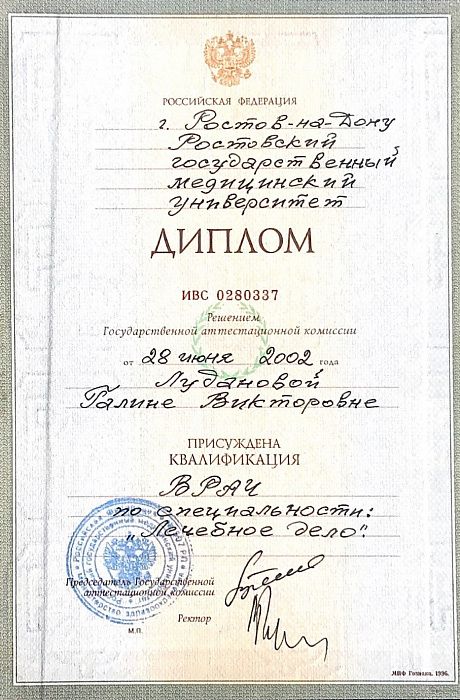 РОССИЙСКАЯ ФЕДЕРАЦИЯ
г. Ростов-на-Дону
Ростовский
государственный
медицинский
университет
ДИПЛОМ
ИВС 0280337
Решением
Государственной аттестационной комиссии
от 28 июня 2002 года
Лудановой
Галине Викторовне
ПРИСУЖДЕНА
КВАЛИФИКАЦИЯ
ВРАЧ
по специальности:
„Лечебное дело".
Председатель Государственной
аттестационной комиссии
Ректор
М.П.
МПФ Гознака. 1996.